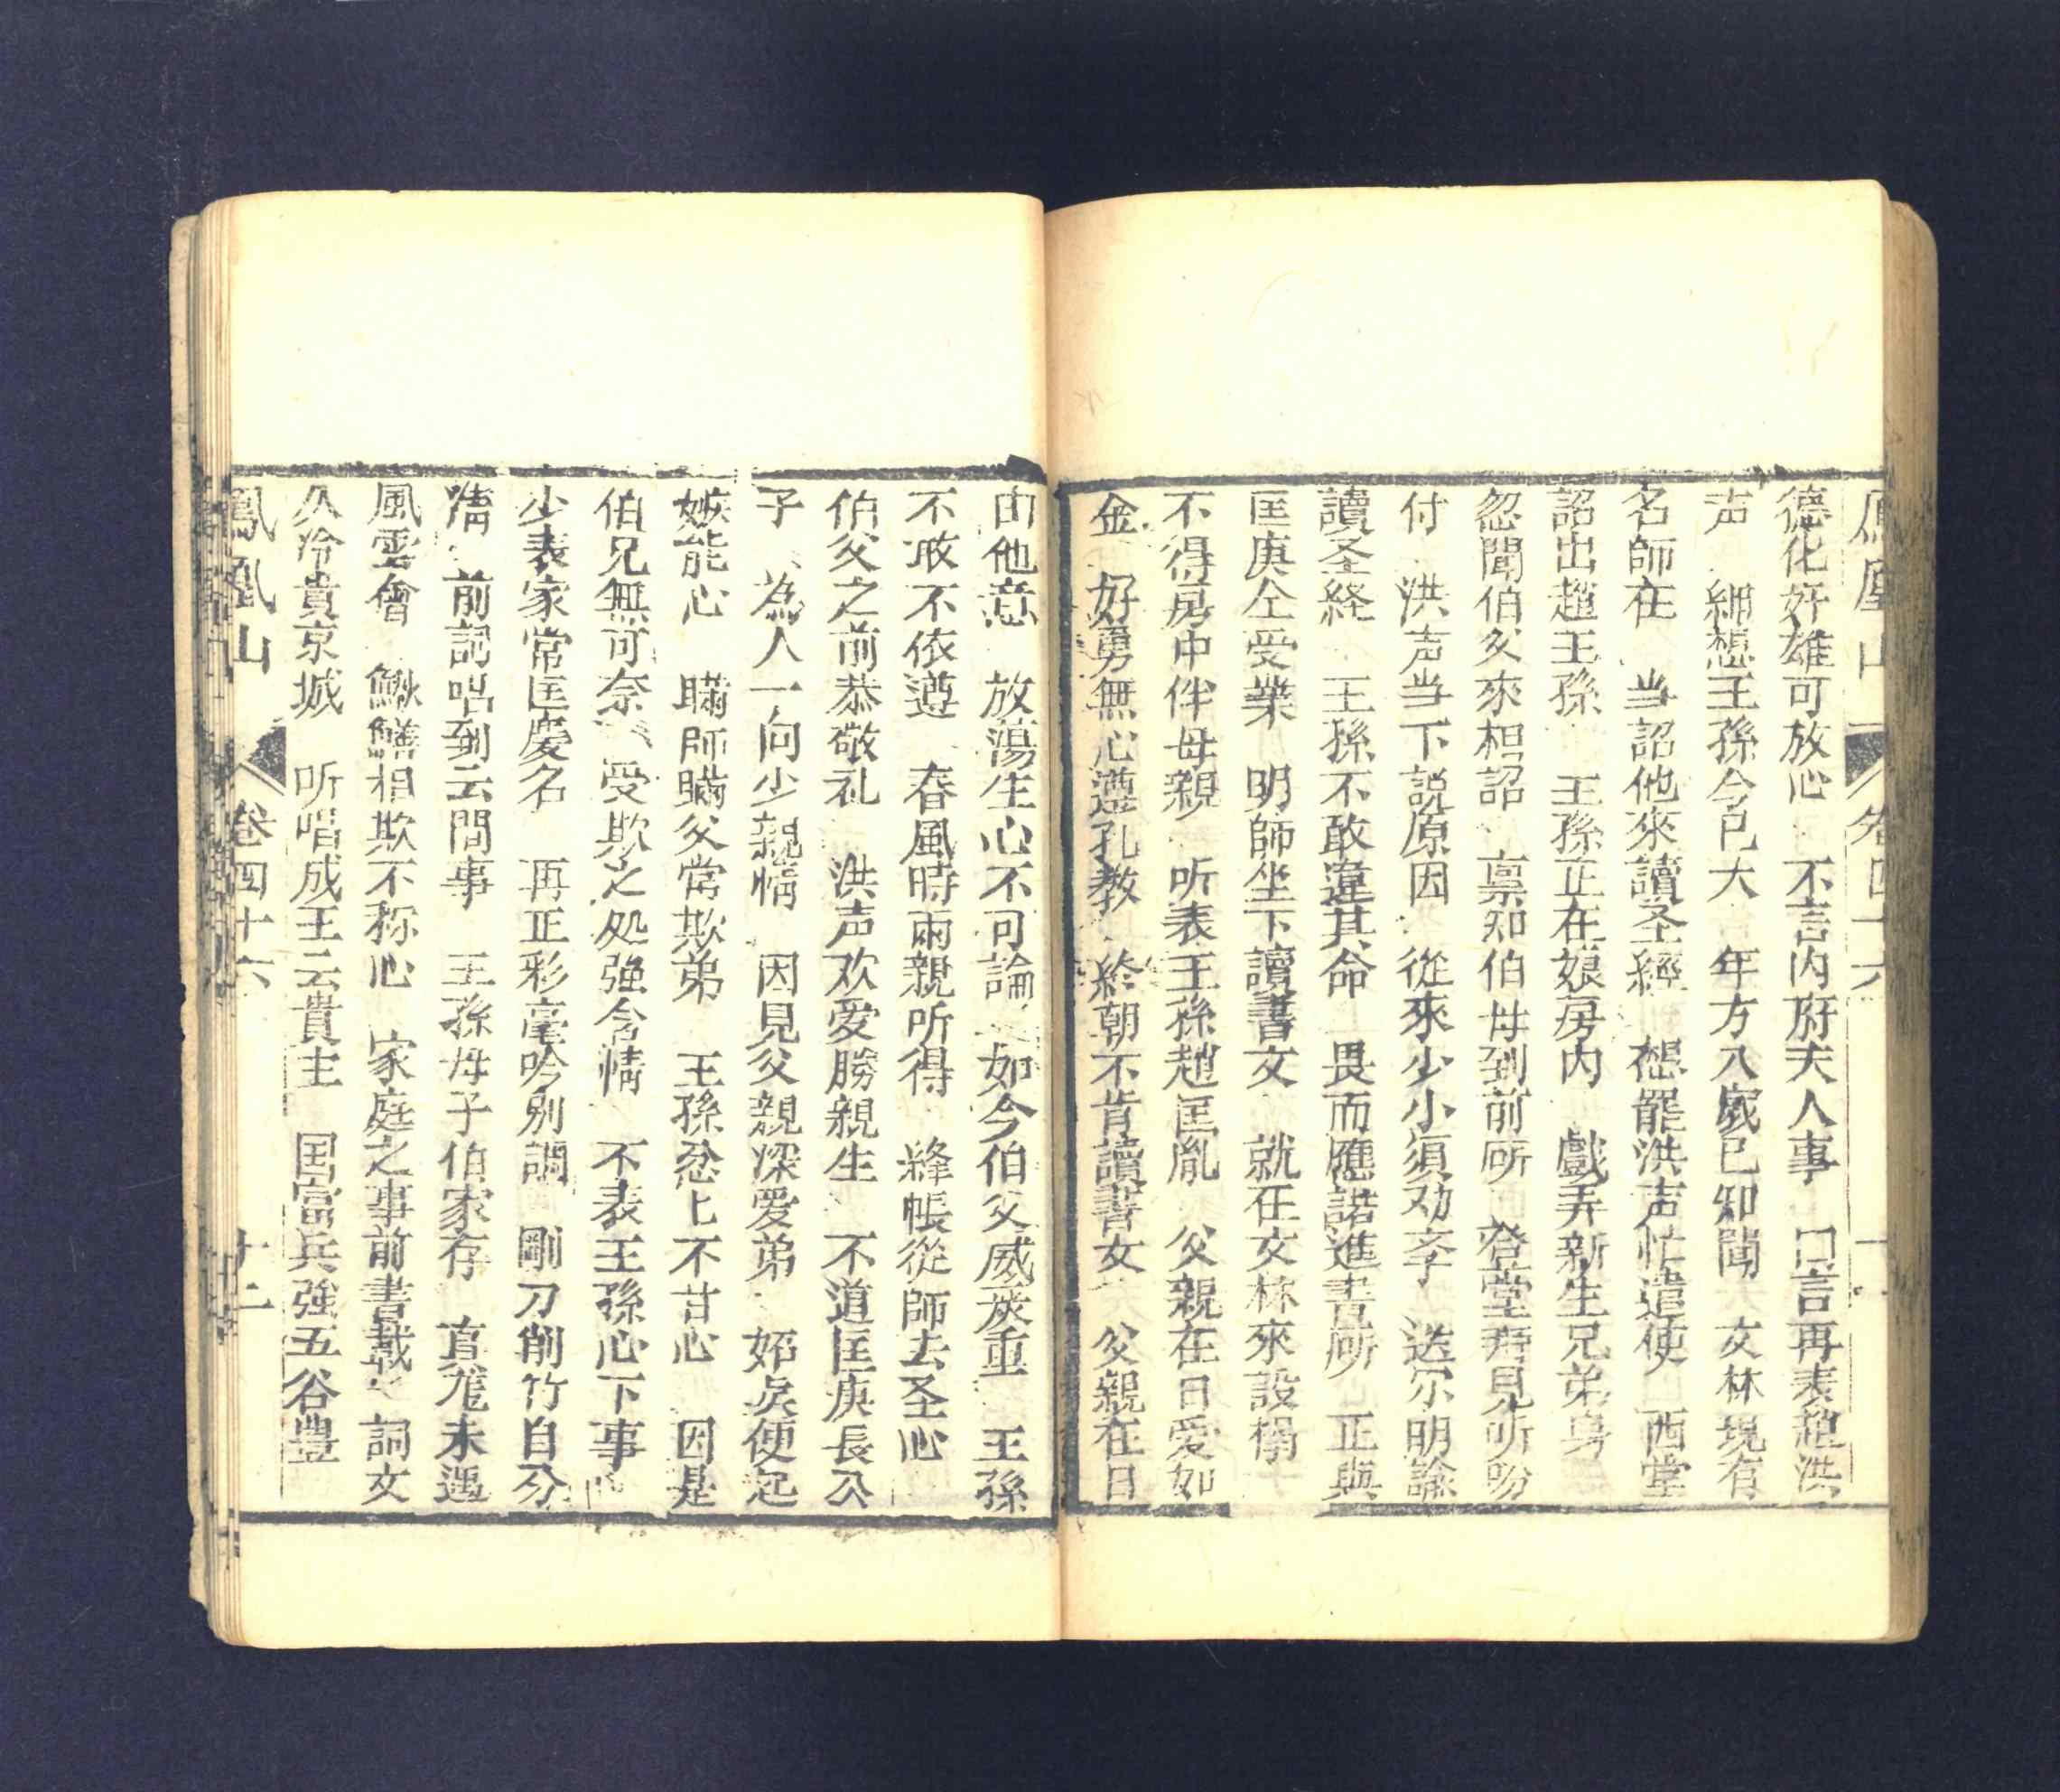 鳳凰山 卷四十六
德化奸雄可放心 不言內府夫人事 口言再表趙洪
声 細想王孫今已大 年方八歲已知聞 文林現有
名師在 当詔他來讀圣經 想罷洪声忙遣使 西堂
詔出趙王孫 王孫正在娘房內 戲弄新生兄弟身
忽聞伯父來相詔 禀知伯母到前所 登堂拜見听吩
付 洪声当下説原因 從來少小須劝斈 送尔明諭
讀圣経 王孫不敢違其命 畏而應諾進書所 正與
匡庚仝受業 明師坐下讀書文 就在文林來設榻
不得房中伴母親 听表王孫趙匡胤 父親在日愛如
金 好勇無心遵孔教 終朝不肯讀書文 父親在日
由他意 放蕩生心不可論 如今伯父威嚴重 王孫
不敢不依遵 春風時雨親听得 絳帳從師去圣心
伯父之前恭敬礼 洪声欢愛勝親生 不道匡庚長公
子 為人一向少親情 因見父親深愛弟 妬矣便起
嫉能心 瞞師瞞父常欺弟 王孫忿上不甘心 因是
伯兄無可奈 受欺之処強含情 不表王孫心下事
少表家常匡慶名 再正彩毫吟别調 剛刀削竹自分
清 前詞唱到云間事 王孫母子伯家存 真龙未遇
風雲會 鰍鱔相欺不称心 家庭之事前書載 詞文
久冷貴京城 听唱成王云貴主 国富兵強五谷豊
鳳凰山 卷四十六 十二